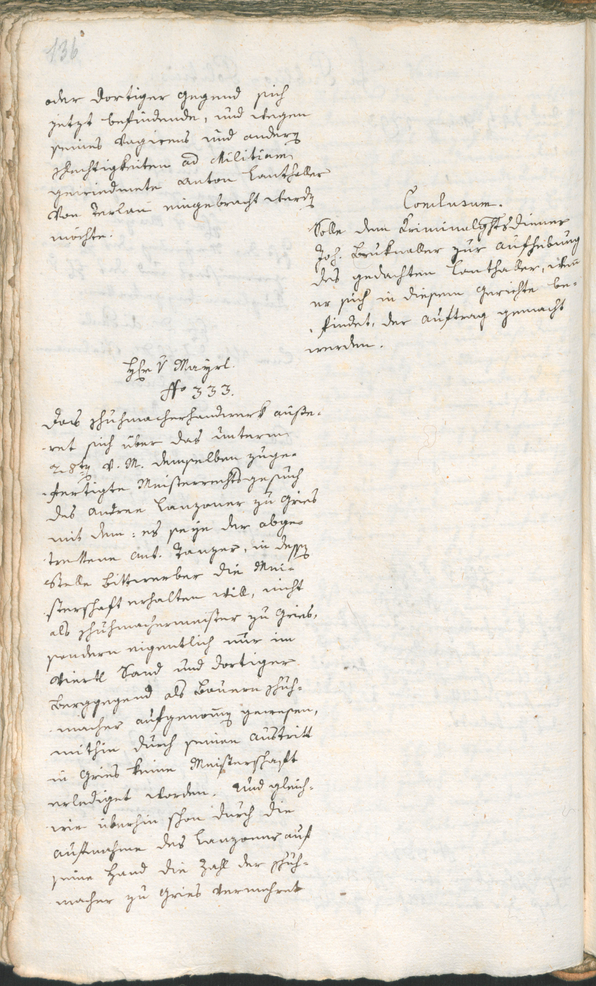 136
oder dortiger Gegend sich
jetzt befindende, und wegen
seines Vagirens und anderer
schlechtigkeiten ad Militiam
gewiedmete Anton Lanthaler
von Terlan eingebracht werden
möchte.
Conclusum.
Solle dem Kriminalgrtsdiener
Joh. Bruknaller zur Aufhebung
des gedachten Lanthaler, wenn
er sich in diesem Gerichte be-
findet, der Auftrag gemacht
werden.
Hr v Mayrl.
No 333.
Das schuhmacherhandwerk äuße-
ret sich über das unterm
v. M. demselben zuge-
fertigte Meisterrechtsgesuch
des Andree Lanzoner zu Gries
mit dem: es seye der abge-
trettene Ant. Tanzer, in dessen
Stelle Bittwerber die Mei-
sterschaft erhalten will, nicht
als schuhmachermeister zu Gries,
sondern eigentlich nur im
Viertl Sand und dortiger
Berggegend als Bauern schuh-
macher aufgenommen gewesen,
mithin durch seinen Austritt
in Gries keine Meisterschaft
erlediget worden. Und gleich-
wie überhin schon durch die
Aufnahme des Lanzoners auf
seine Hand die Zahl der schuh-
macher zu Gries vermehret